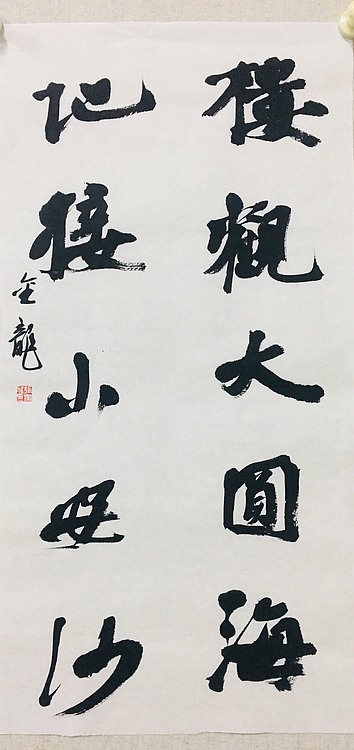 樓觀大圓海
地接小母沙
金龍